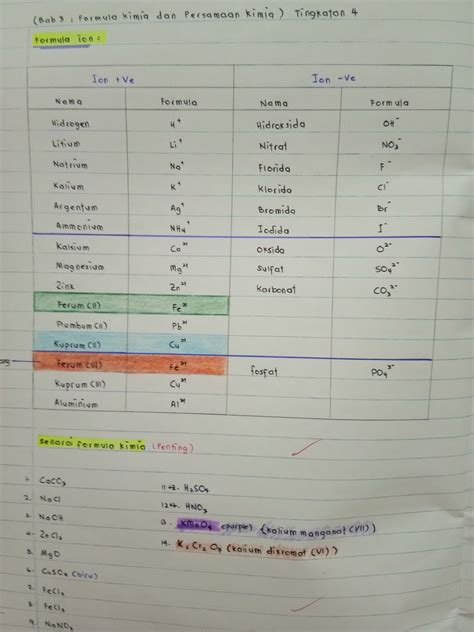 (Bab 3 : Formula Kimia dan Persamaan Kimia) Tingkatan 4
Formula ion :
Ion +Ve Ion -Ve
Nama Formula Nama Formula
Hidrogen H⁺ Hidroksida OH⁻
Litium Li⁺ Nitrat NO₃⁻
Natrium Na⁺ Florida F⁻
Kalium K⁺ Klorida Cl⁻
Argentum Ag⁺ Bromida Br⁻
Ammonium NH₄⁺ Iodida I⁻
Kalsium Ca²⁺ Oksida O²⁻
Magnesium Mg²⁺ Sulfat SO₄²⁻
Zink Zn²⁺ Karbonat CO₃²⁻
Ferum (II) Fe²⁺
Plumbum (II) Pb²⁺
Kuprum (II) Cu²⁺
Ferum (III) Fe³⁺ fosfat PO₄³⁻
Kuprum (II) Cu²⁺
Aluminium Al³⁺
Senarai Formula Kimia (Penting)
1. CaCO₃ H₂SO₄
2. NaCl 12. HNO₃
3. NaOH 13. KMnO₄ (purple) (kalium manganat (VII))
4. ZnCl₂ 14. K₂Cr₂O₇ (kalium dikromat (VI))
5. MgO
6. CuSO₄ (biru)
7. FeCl₂
8. FeCl₃
9. NaNO₃